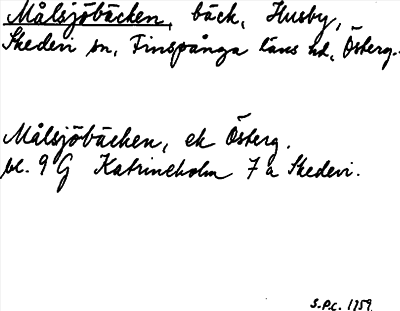 Målsjöbäcken, bäck, Husby,
Skedevi sn, Finspånga läns hd, Österg.
Målsjöbäcken, ek Österg.
bl. 9 G Katrineholm 7 a Skedevi.
S.P.C. 1959